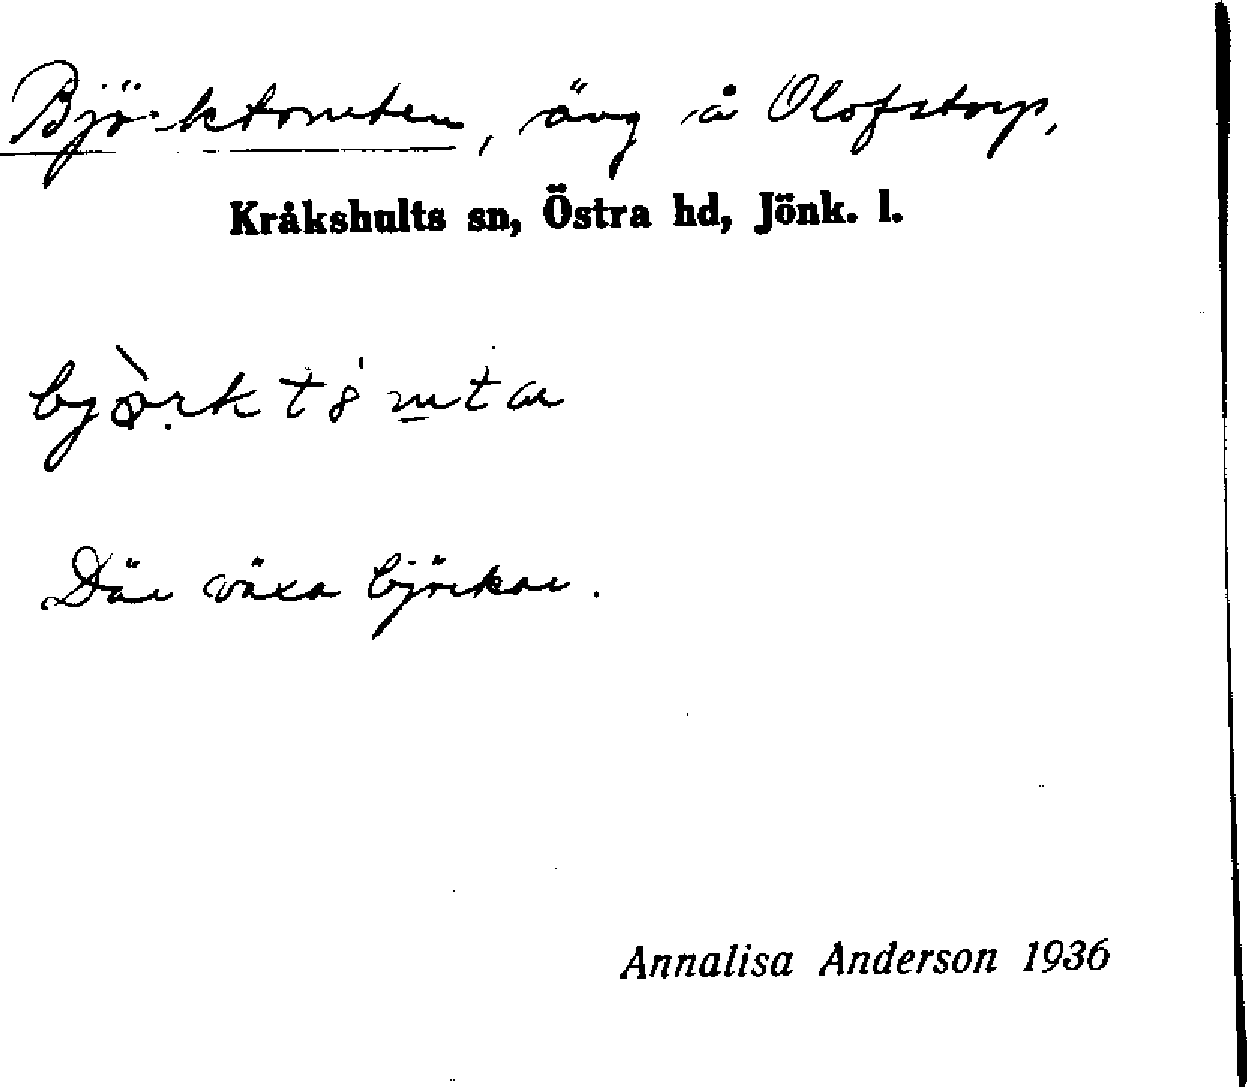 Björktomten, äng å Olofstorp,
Kråkshults sn, Östra hd, Jönk. l.
Där växa björkar.
Annalisa Anderson 1936